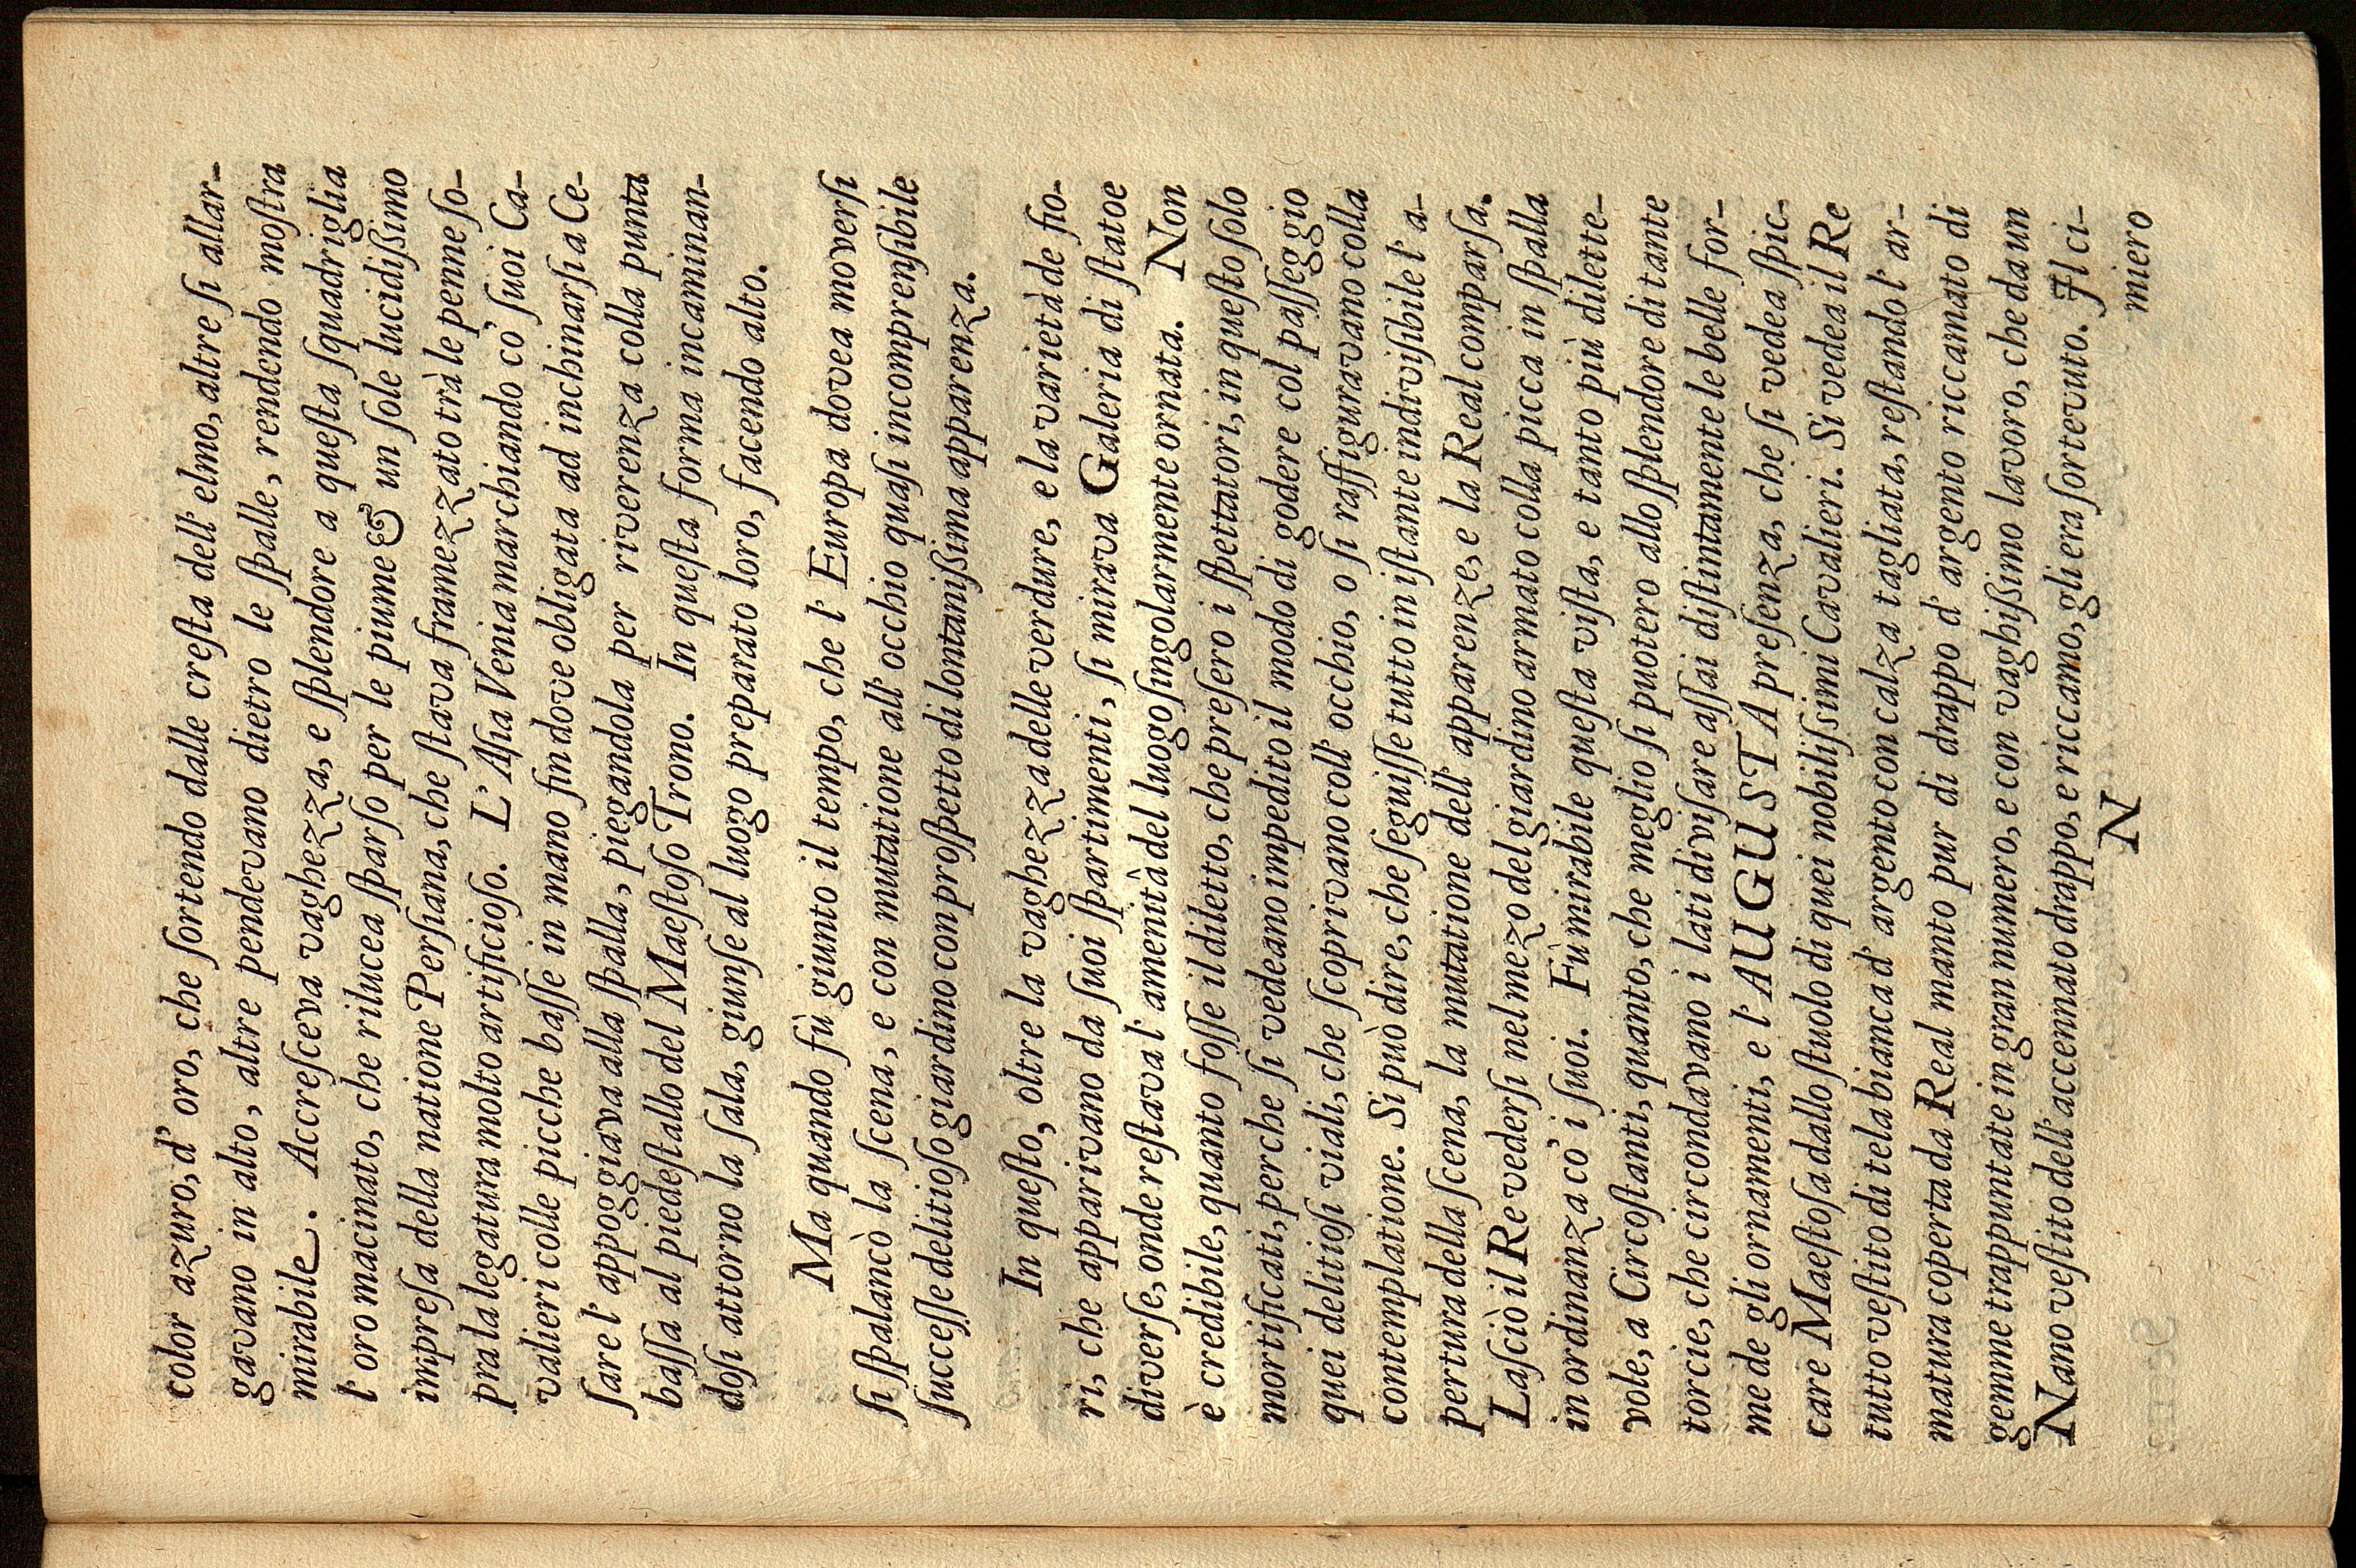 color azuro, d' oro, che ſortendo dalle creſta dell' elmo, altre ſi allar-
gavano in alto, altre pendevano dietro le ſpalle, rendendo moſtra
mirabile. Accreſceva vaghezza, e ſplendore a queſta ſquadriglia
l' oro macinato, che rilucea ſparſo per le piume & un ſole lucidiſſimo
impreſa della natione Perſiana, che ſtava framezzato trà le penne ſo-
pra la legatura molto artificioſo. L' Aſia Venia marchiando co' ſuoi Ca-
valieri colle picche baſſe in mano fin dove obligata ad inchinarſi a Ce-
ſare l' appoggiava alla ſpalla, piegandola per riverenza colla punta
baſſa al piedeſtallo del Maeſtoſo Trono. In queſta forma incaminan-
doſi attorno la ſala, giunſe al luogo preparato loro, facendo alto.
Ma quando fù giunto il tempo, che l' Europa dovea moverſi
ſi ſpalancò la ſcena, e con mutatione all' occhio quaſi incomprenſibile
ſucceſſe delitioſo giardino con proſpetto di lontaniſſima apparenza.
In queſto, oltre la vaghezza delle verdure, e la varietà de fio-
ri, che apparivano da ſuoi ſpartimenti, ſi mirava Galeria di ſtatoe
diverſe, onde reſtava l' amenità del luogo ſingolarmente ornata. Non
è credibile, quanto foſſe il diletto, che preſero i ſpettatori, in queſto ſolo
mortificati, perche ſi vedeano impedito il modo di godere col paſſeggio
quei delitioſi viali, che ſcoprivano coll' occhio, o ſi raffiguravano colla
contemplatione. Si può dire, che ſeguiſſe tutto in iſtante indiviſibile l' a-
pertura della ſcena, la mutatione dell' apparenze, e la Real comparſa.
Laſciò il Re vederſi nel mezo del giardino armato colla picca in ſpalla
in ordinanza co' i ſuoi. Fù mirabile queſta viſta, e tanto più dilette-
vole, a Circoſtanti, quanto, che meglio ſi puotero allo ſplendore di tante
torcie, che circondavano i lati diviſare aſſai diſtintamente le belle for-
me de gli ornamenti, e l' AUGUSTA preſenza, che ſi vedea ſpic-
care Maeſtoſa dallo ſtuolo di quei nobiliſsimi Cavalieri. Si vedea il Re
tutto veſtito di tela bianca d' argento con calza tagliata, reſtando l' ar-
matura coperta da Real manto pur di drappo d' argento riccamato di
gemme trappuntate in gran numero, e con vaghiſſimo lavoro, che da un
Nano veſtito dell' accennato drappo, e riccamo, gli era ſortevuto. Il ci-
N miero